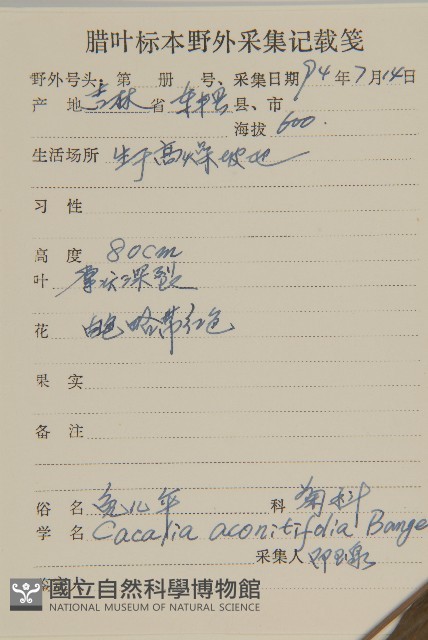 腊叶标本野外采集记载笺
野外号头: 第 册 号、采集日期 94 年 7 月 14 日
产 地 吉林 省 县、市
海拔 600.
生活场所 生于高燥坡地
习 性
高 度 80cm
叶 掌状深裂
花 白色略带红色
果 实
备 注
俗 名 兔儿伞 科 菊科
学 名 Cacalia aconitifolia Bange
采集人
國立自然科學博物館
NATIONAL MUSEUM OF NATURAL SCIENCE